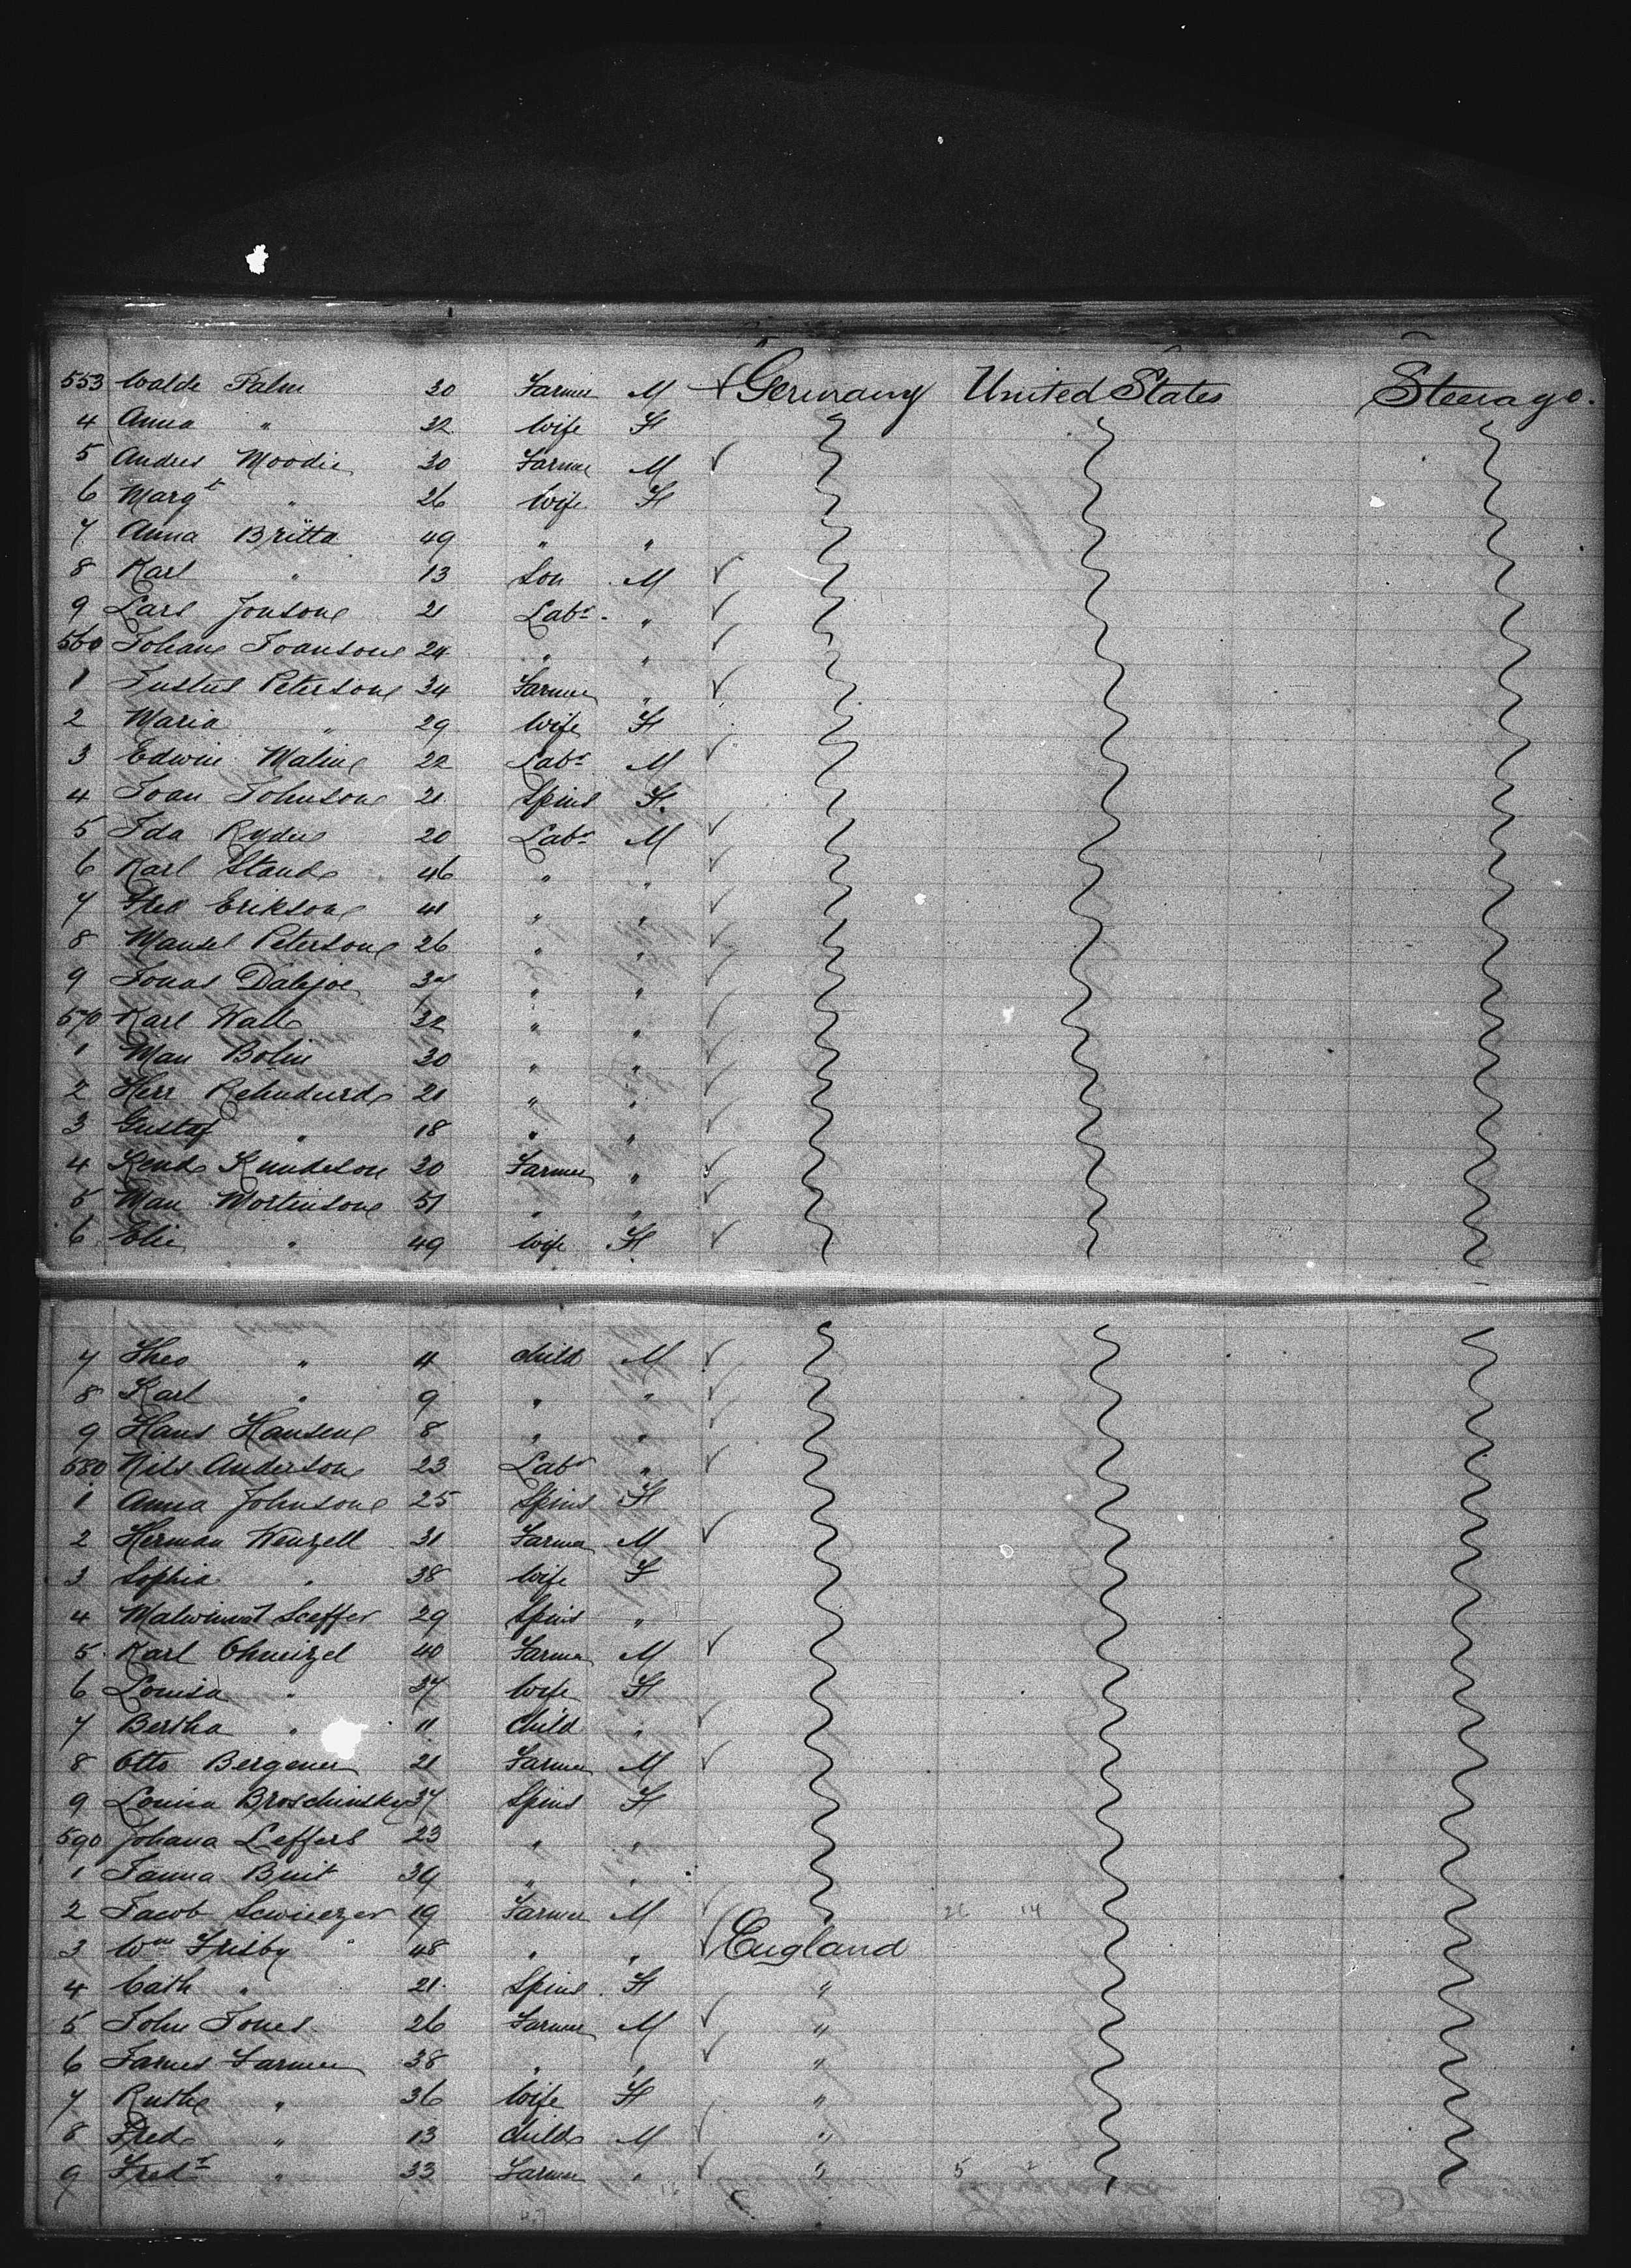 553 Walde Palm 30 Farmer M Germany United States Steerage.
4 Anna " 32 Wife F
5 Andres Moodie 30 Farmer M
6 Margt " 26 Wife F
7 Anna Britta 49 " "
8 Karl " 13 Son M
9 Lars Jonsone 21 Labr "
560 Johane Joansone 24 " "
1 Justus Petersone 34 Farmer "
2 Maria " 29 Wife F
3 Edwin Maline 22 Labr M
4 Joan Johnsone 21 Spins F
5 Ida Ryden 20 Labr M
6 Karl Stand 46 " "
7 Fred Eriksone 41 " "
8 Mansel Petersone 26 " "
9 Jonas 37 " "
570 Karl Wall 32 " "
1 Man Bolin 30 " "
2 Herr 21 " "
3 Gustaf " 18 " "
4 Knudsone 30 Farmer "
5 Man Mortensone 51 " "
6 Elie " 49 Wife F
7 Theo " 11 Child M
8 Karl " 9 " "
9 Hans Hansene 8 " "
580 Nils Andersone 23 Labr "
1 Anna Johnsone 25 Spins F
2 Herman Wenzell 31 Farmer M
3 Sophia " 38 Wife F
4 Sceffer 29 Spins "
5 Karl 40 Farmer M
6 Louisa " 37 Wife F
7 Bertha " 11 Child "
8 Otto Bergener 21 Farmer M
9 Louisa Broschinsky 37 Spins F
590 Johana Leffers 23 " "
1 Fanna 39 " "
2 Jacob Scwiezer 19 Farmer M 26 14
3 Wm Frisby 48 " " England
4 Cath " 21 Spins F "
5 John Jones 26 Farmer M "
6 James Farmer 38 " " "
7 Ruth " 36 Wife F "
8 Fred " 13 Child M "
9 Fredk " 33 Farmer " " 5 2